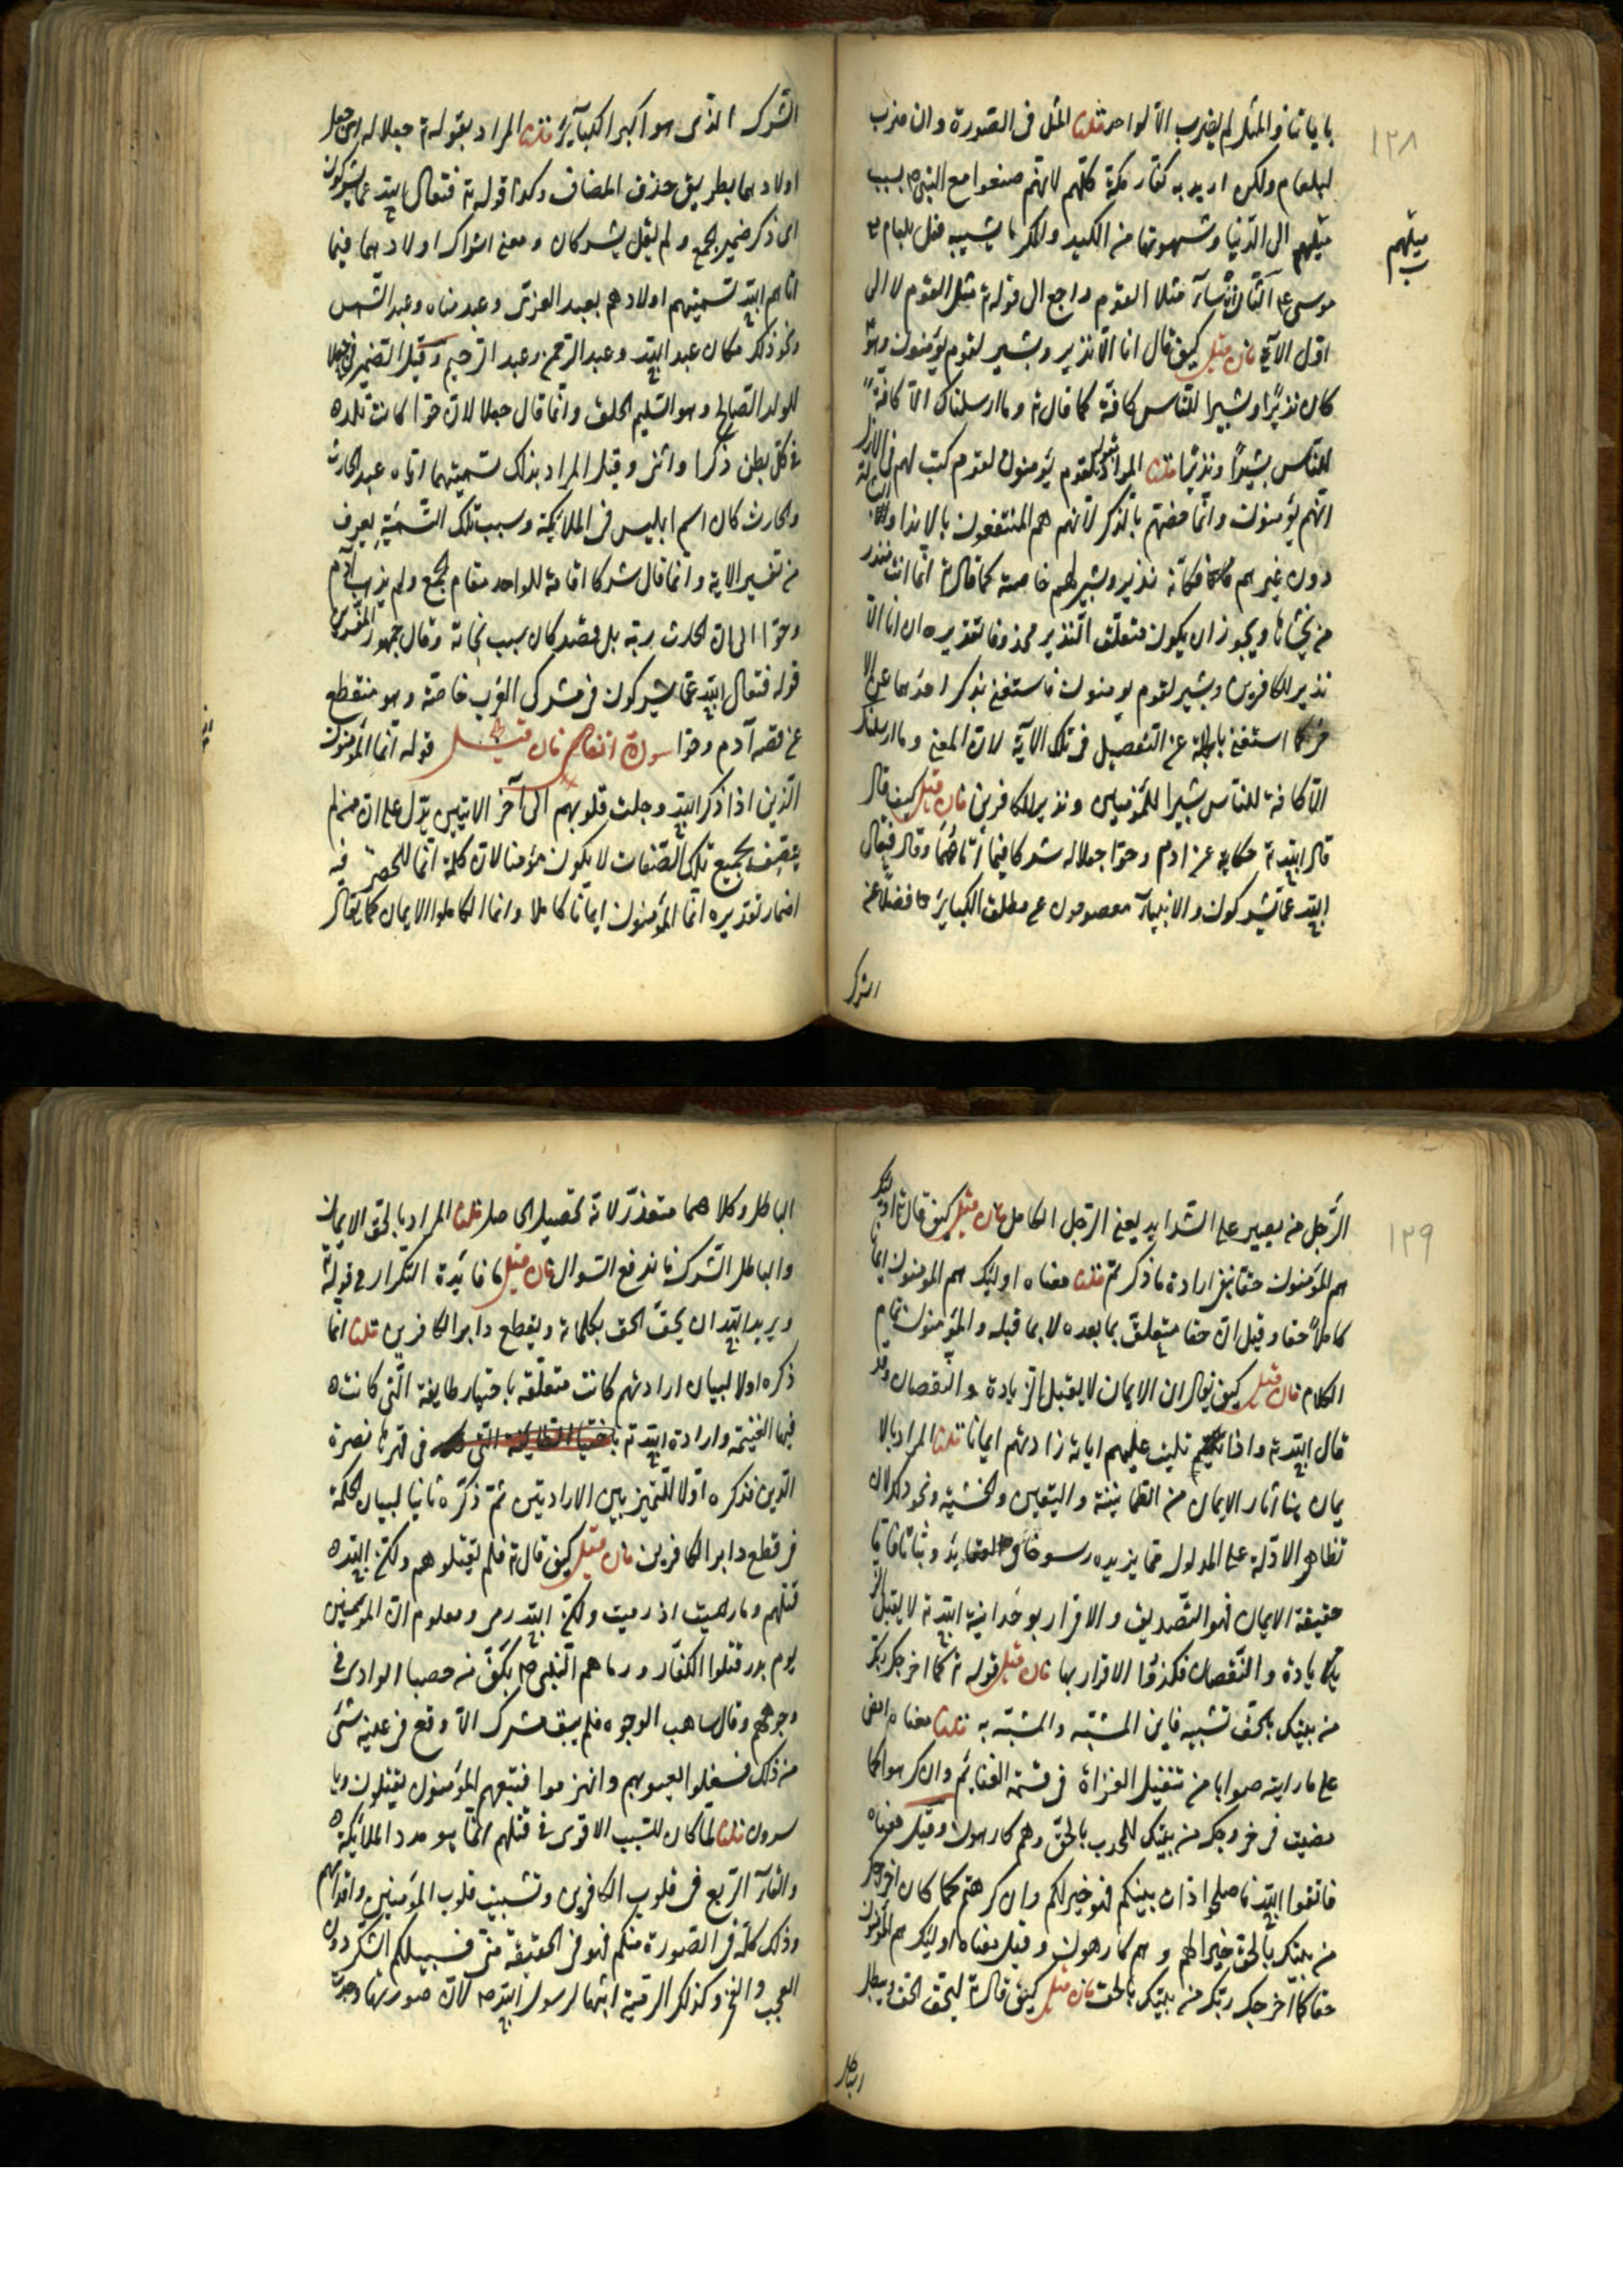 ١٢٨
باياتنا والمثل لم يضرب الا لواحد قلنا المثل فى الصورة وان ضرب
لبلعام ولكن اريد به كفار مكة كلهم لانهم صنعوا مع النبى ص بسبب
ميلهم الى الدنيا وشهوتها من الكيد والمكر ما يشبه فعل بلعام مع
ميلهم
موسى ع الثانى ان ساء مثلا القوم راجع الى قوله ت مثل القوم لا الى
اول الآية فان قيل كيف قال انا الا نذير وبشير لقوم يؤمنون وهو
كان نذيرا وبشيرا للناس كافة كما قال ت وما ارسلناك الا كافة
للناس بشيرا ونذيرا قلنا المراد بقوله لقوم يؤمنون لقوم كتب لهم فى الازل
انهم يؤمنون وانما خصهم بالذكر لانهم هم المنتفعون بالانذار
دون غيرهم فكانه نذير وبشير لهم خاصة كما قال ت انما انت منذر
من يخشاها ويجوز ان يكون متعلق النذير محذوفا تقديره ان انا الا
نذير للكافرين وبشير لقوم يومنون فاستغنى بذكر احدهما عن الا
خر كما استغنى بالجملة عن التفصيل فى تلك الآية لان المعنى وما ارسلناك
الا كافة للناس بشيرا للمؤمنين ونذيرا للكافرين فان قيل كيف قال
قال الله ت حكاية عن ادم وحوا جعلا له شركا فيما أتاهما وقال فتعالى
الله عما يشركون والانبياء معصومون عن مطلق الكبائر فضلا عن
الشرك
الشرك الذى هو اكبر الكبائر قلنا المراد بقوله ت جعلا له اى جعل
اولادهما بطريق حذف المضاف وكذا قوله ت فتعالى الله عما يشركون
اى ذكر ضمير الجمع ولم يقل يشركان ومعنى اشراك اولادهما فيما
اتاهم الله تسميتهم اولادهم بعبد العزى وعبد مناه وعبد الشمس
ونحو ذلك مكان عبد الله وعبد الرحمن وعبد الرحيم وقيل الضمير فى جعلا
للولد الصالح وهو السليم الخلق وانما قال جعلا لان حوا كانت تلده
فى كل بطن ذكرا وانثى وقيل المراد بذلك تسميتهما اياه عبد الحارث
والحارث كان اسم ابليس فى الملائكة وسبب تلك التسمية يعرف
من تفسير الاية وانما قال شركا اقامة للواحد مقام الجمع ولم يذهب آدم
وحوا الى ان الحارث ربه بل قصد كان سبب نجاته وقال جمهور المفسرين
قوله فتعالى الله عما يشركون فى مشركى العرب خاصة وهو منقطع
عن قصة آدم وحوا سورة انفال فان قيل قوله انما المؤمنون
الذين اذا ذكر الله وجلت قلوبهم الى آخر الايتين يدل على ان من لم
يتصف بجميع تلك الصفات لا يكون مؤمنا لان كلمة انما للحصر قلنا فيه
اضمار تقديره انما المؤمنون ايمانا كاملا وانما الكاملوا الايمان كما يقال
١٢٩
الرجل من يصبر على الشدايد يعنى الرجل الكامل فان قيل كيف قال ت اولئك
هم المؤمنون حقا ينفى ارادة ما ذكرتم قلنا معناه اولئك هم المؤمنون ايمانا
كاملا حقا وقيل ان حقا متعلق بما بعده لا بما قبله والمؤمنون تمام
الكلام فان قيل كيف يقال ان الايمان لا يقبل الزيادة والنقصان وقد
قال الله ت واذا تليت عليهم اياته زادتهم ايمانا قلنا المراد بالا
يمان هنا آثار الايمان من الطمانينة واليقين والخشية ونحو ذلك لان
تظاهر الادلة على المدلول مما يزيده رسوخا فى العقايد وثباتا فاما
حقيقة الايمان فهو التصديق والاقرار بوحدانية الله ت لا يقبل الز
يادة والنقصان فكذا الاقرار بها فان قيل قوله ت كما اخرجك ربك
من بيتك بالحق تشبيه فاين المشبه والمشبه به قلنا معناه امض
على ما رايته صوابا من تنفيل الغزاة فى قسمة الغنائم وان كرهوا كما
مضيت فى خروجك من بيتك للحرب بالحق وهم كارهون وقيل معناه
فاتقوا الله فاصلحوا ذات بينكم فهو خير لكم وان كرهتم كما كان اخراجك
من بيتك بالحق خيرا لهم وهم كارهون وقيل معناه اولئك هم المؤمنون
حقا كما اخرجك ربك من بيتك بالحق فان قيل كيف قال ت ليحق الحق ويبطل
الباطل
الباطل وكلاهما متعذر لانه تحصيل الحاصل قلنا المراد بالحق الايمان
والباطل الشرك فاندفع السوال فان قيل ما فائدة التكرار فى قوله ت
ويريد الله ان يحق الحق بكلماته ويقطع دابر الكافرين قلنا انما
ذكره اولا لبيان ارادتهم كانت متعلقة باختيار طايفة التى كانت
فيها الغنيمة وارادة الله ت باختيا الطايفة التى فى قهرها نصرة
الدين فذكره اولا للتميز بين الارادتين ثم ذكره ثانيا لبيان الحكمة
فى قطع دابر الكافرين فان قيل كيف قال ت فلم تقتلوهم ولكن الله
قتلهم وما رميت اذ رميت ولكن الله رمى ومعلوم ان المؤمنين
يوم بدر قتلوا الكفار ورماهم النبى ص بكف من حصبا الوادى فى
وجوههم وقال شاهت الوجوه فلم يبق مشرك الا وقع فى عينه شئ
من ذلك فشغلوا بعيونهم وانهزموا فتبعهم المؤمنون يقتلون ويا
سرون قلنا لما كان السبب الاقوى فى قتلهم انما هو مدد الملائكة
والقاء الرعب فى قلوب الكافرين وتثبيت قلوب المؤمنين واقدامهم
وذلك كله فى الصورة منكم فهو فى الحقيقة منى فسبيلكم الشكر دون
العجب والفخر وكذلك الرمية اثبتها لرسول الله ص لان صورتها وجدت